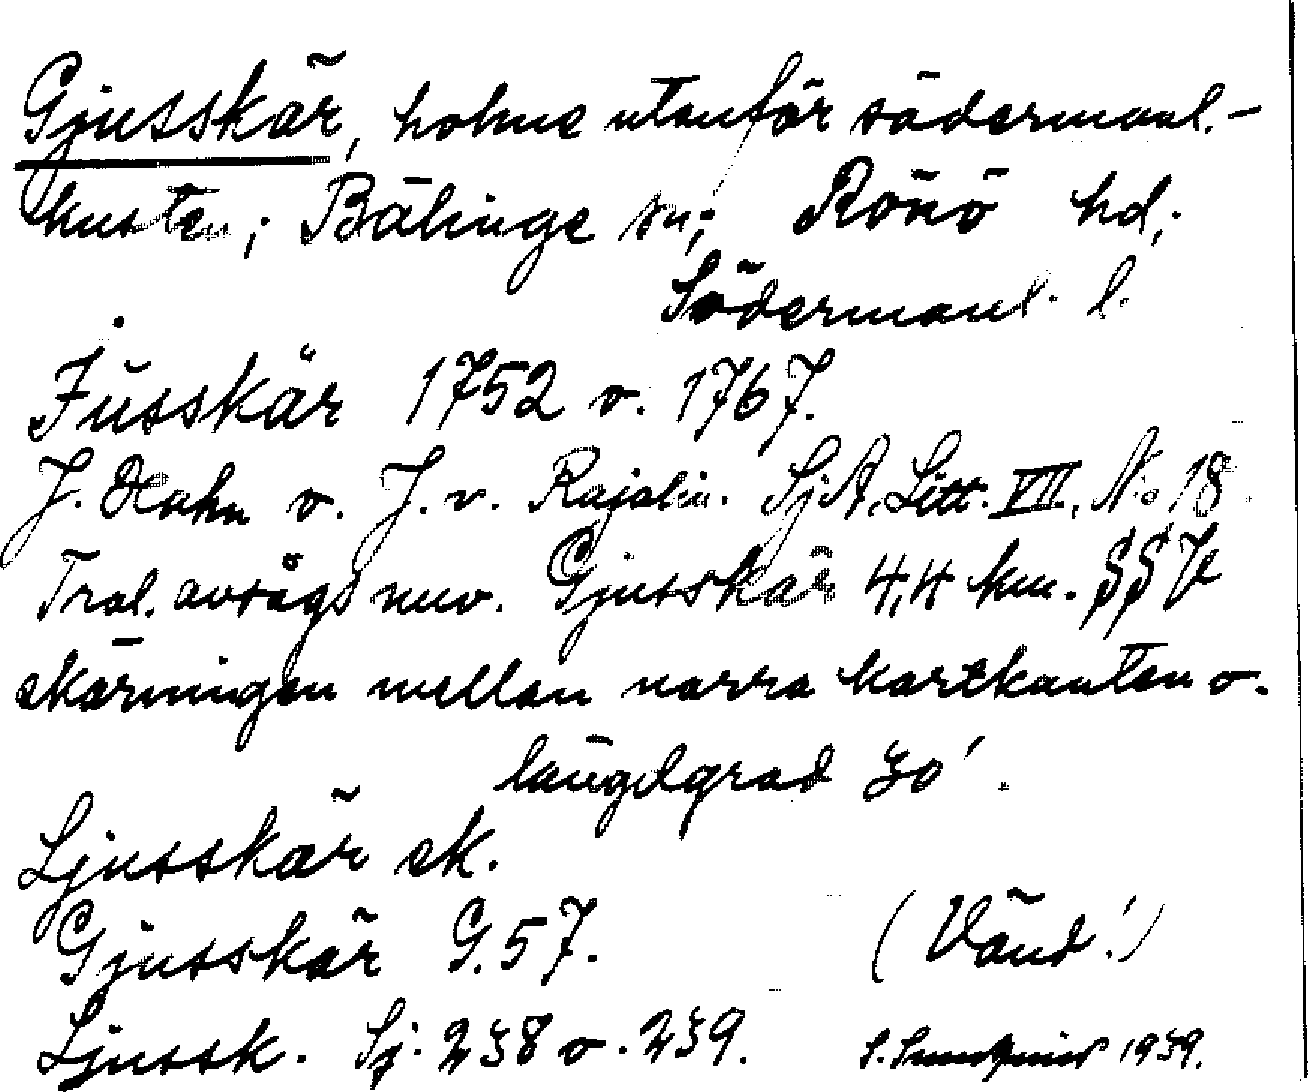 Gjusskär, holme utanför södermanl.-
kusten; Bälinge sn; Rönö hd;
Södermanl. l.
Jusskär 1752 o. 1767.
J. Hahn o. J. v. Rajalin. Sj A. Litt. VII. No 18.
Trol. avsågs nuv. Gjusskär 4,4 km.
skärningen mellan norra kartkanten o.
längdgrad 30'.
Ljusskär ek.
Gjusskär G. 57. (Vänd!)
Ljussk. Sj. 238 o. 239. 1939.